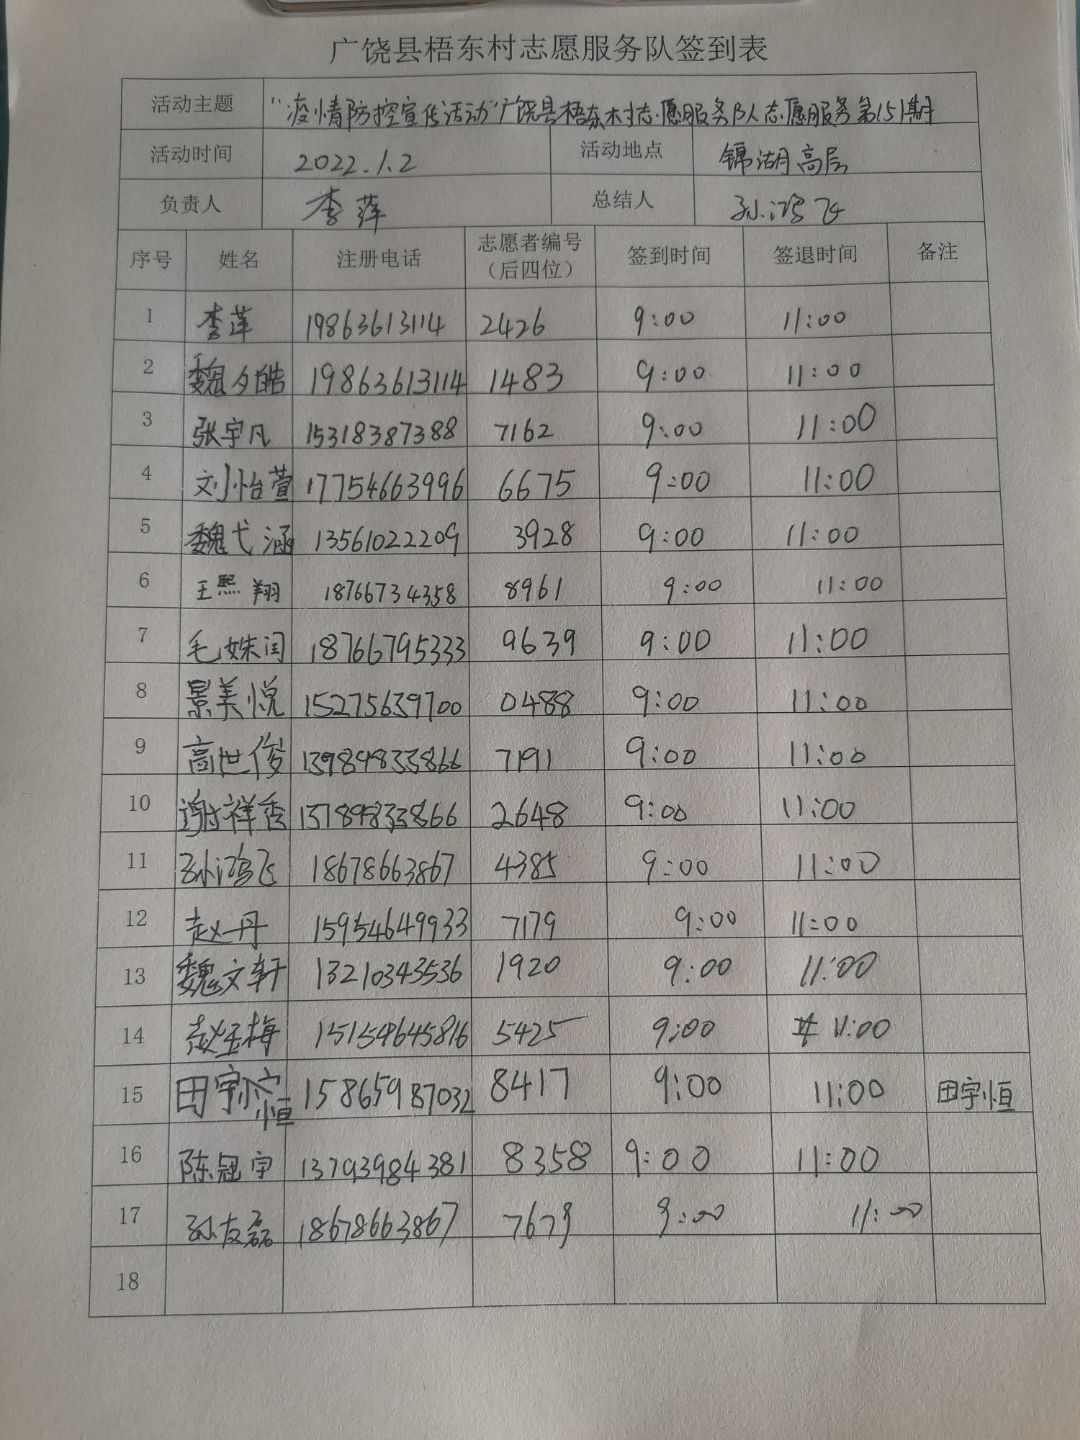 广饶县梧东村志愿服务队签到表
活动主题 "疫情防控宣传活动"广饶县梧东村志愿服务队志愿服务第151期
活动时间 2022.1.2 活动地点 锦湖高层
负责人 李萍 总结人 孙鸿飞
序号 姓名 注册电话 志愿者编号（后四位） 签到时间 签退时间 备注
1 李萍 19863613114 2426 9:00 11:00
2 魏夕皓 19863613114 1483 9:00 11:00
3 张宇凡 15318387388 7162 9:00 11:00
4 刘怡萱 17754663996 6675 9:00 11:00
5 魏弋涵 13561022209 3928 9:00 11:00
6 王熙翔 18766734358 8961 9:00 11:00
7 毛姝闰 18766795333 9639 9:00 11:00
8 景美悦 15275639700 0488 9:00 11:00
9 高世俊 7191 9:00 11:00
10 谢祥香 2648 9:00 11:00
11 孙鸿飞 18678663867 4385 9:00 11:00
12 赵丹 15954649933 7179 9:00 11:00
13 魏文轩 13210343536 1920 9:00 11:00
14 赵玉梅 15154645816 5425 9:00 11:00
15 田宇恒 15865987032 8417 9:00 11:00 田宇恒
16 陈冠宇 13793984381 8358 9:00 11:00
17 孙友磊 18678663867 7679 9:00 11:00
18